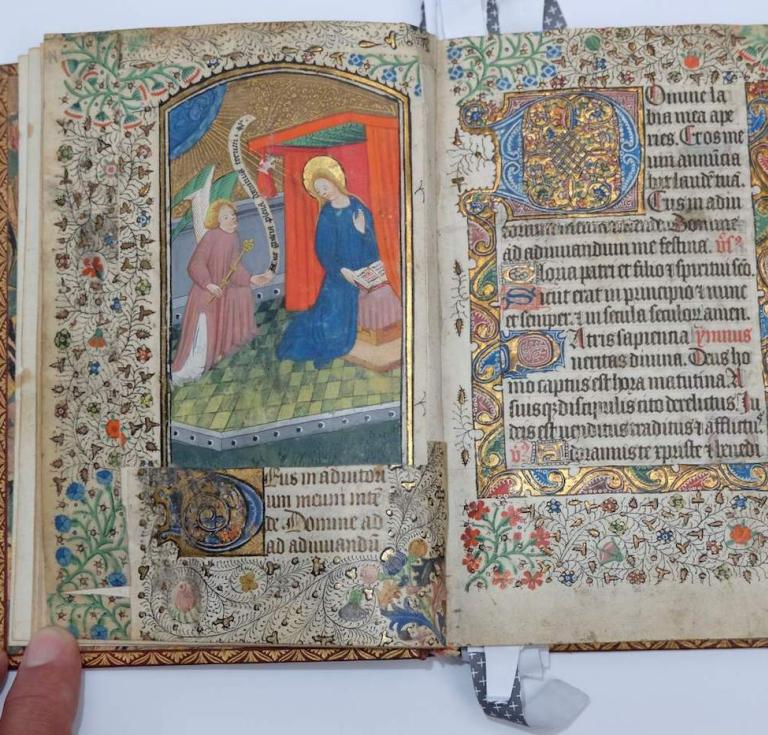 Aue gracia plena dominus tecum
Deus in adiutori
um meum inte
de Domine ad
ad adiuuandū
Domine la
bia mea ape
ries. Et os me
um annūcia
bit laudē tuā.
Deus in adiu
torium meum intende. Domine
ad adiuuandum me festina.
Gloria patri et filio ⁊ spiritui sco.
Sicut erat in principio ⁊ nunc
et semper. ⁊ in secula seculor amen.
Patris sapientia ymnus
ueritas diuina. Deus ho
mo captus est hora matutina. A
suisqꝫ discipulis cito derelictus. Iu
deis est uenditus traditus ⁊ afflictus
Adoramus te xpriste ⁊ benedi